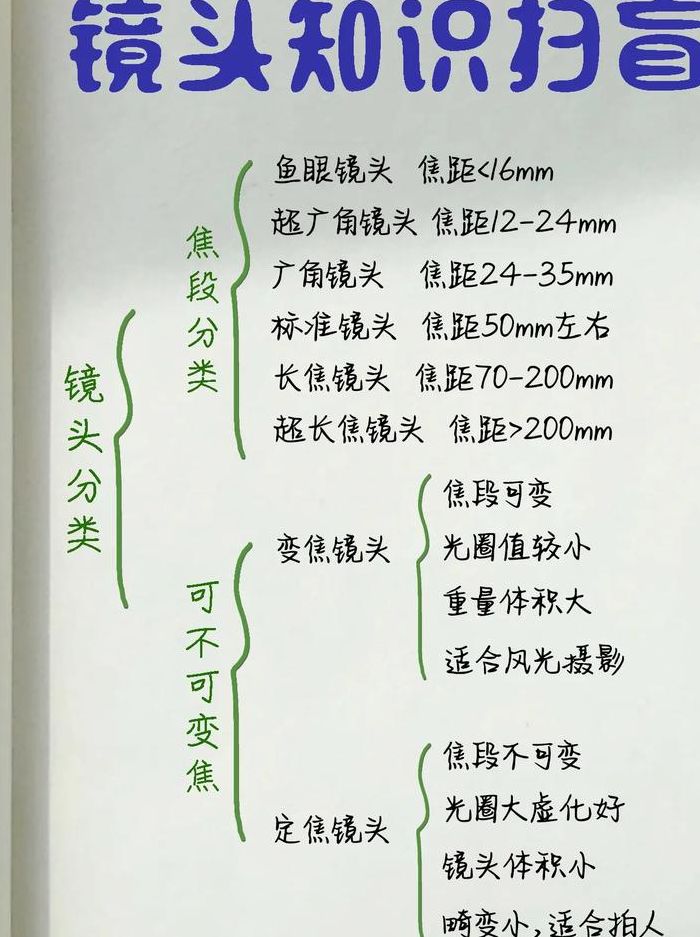 镜头知识扫盲
镜头分类
焦段分类
鱼眼镜头 焦距<16mm
超广角镜头 焦距12-24mm
广角镜头 焦距24-35mm
标准镜头 焦距50mm左右
长焦镜头 焦距70-200mm
超长焦镜头 焦距>200mm
可不可变焦
变焦镜头
焦段可变
光圈值较小
重量体积大
适合风光摄影
定焦镜头
焦段不可变
光圈大虚化好
镜头体积小
畸变小,适合拍人